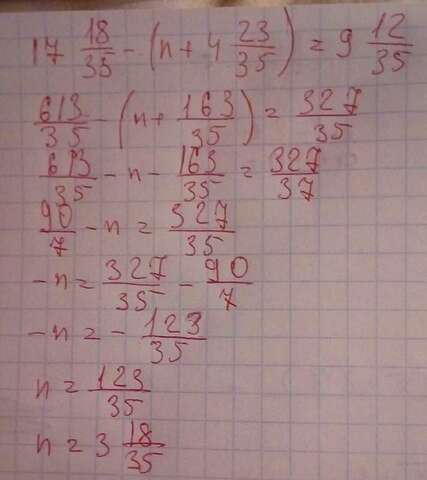 17 18/35 - (n + 4 23/35) = 9 12/35
613/35 - (n + 163/35) = 327/35
613/35 - n - 163/35 = 327/37
90/7 - n = 327/35
-n = 327/35 - 90/7
-n = - 123/35
n = 123/35
n = 3 18/35